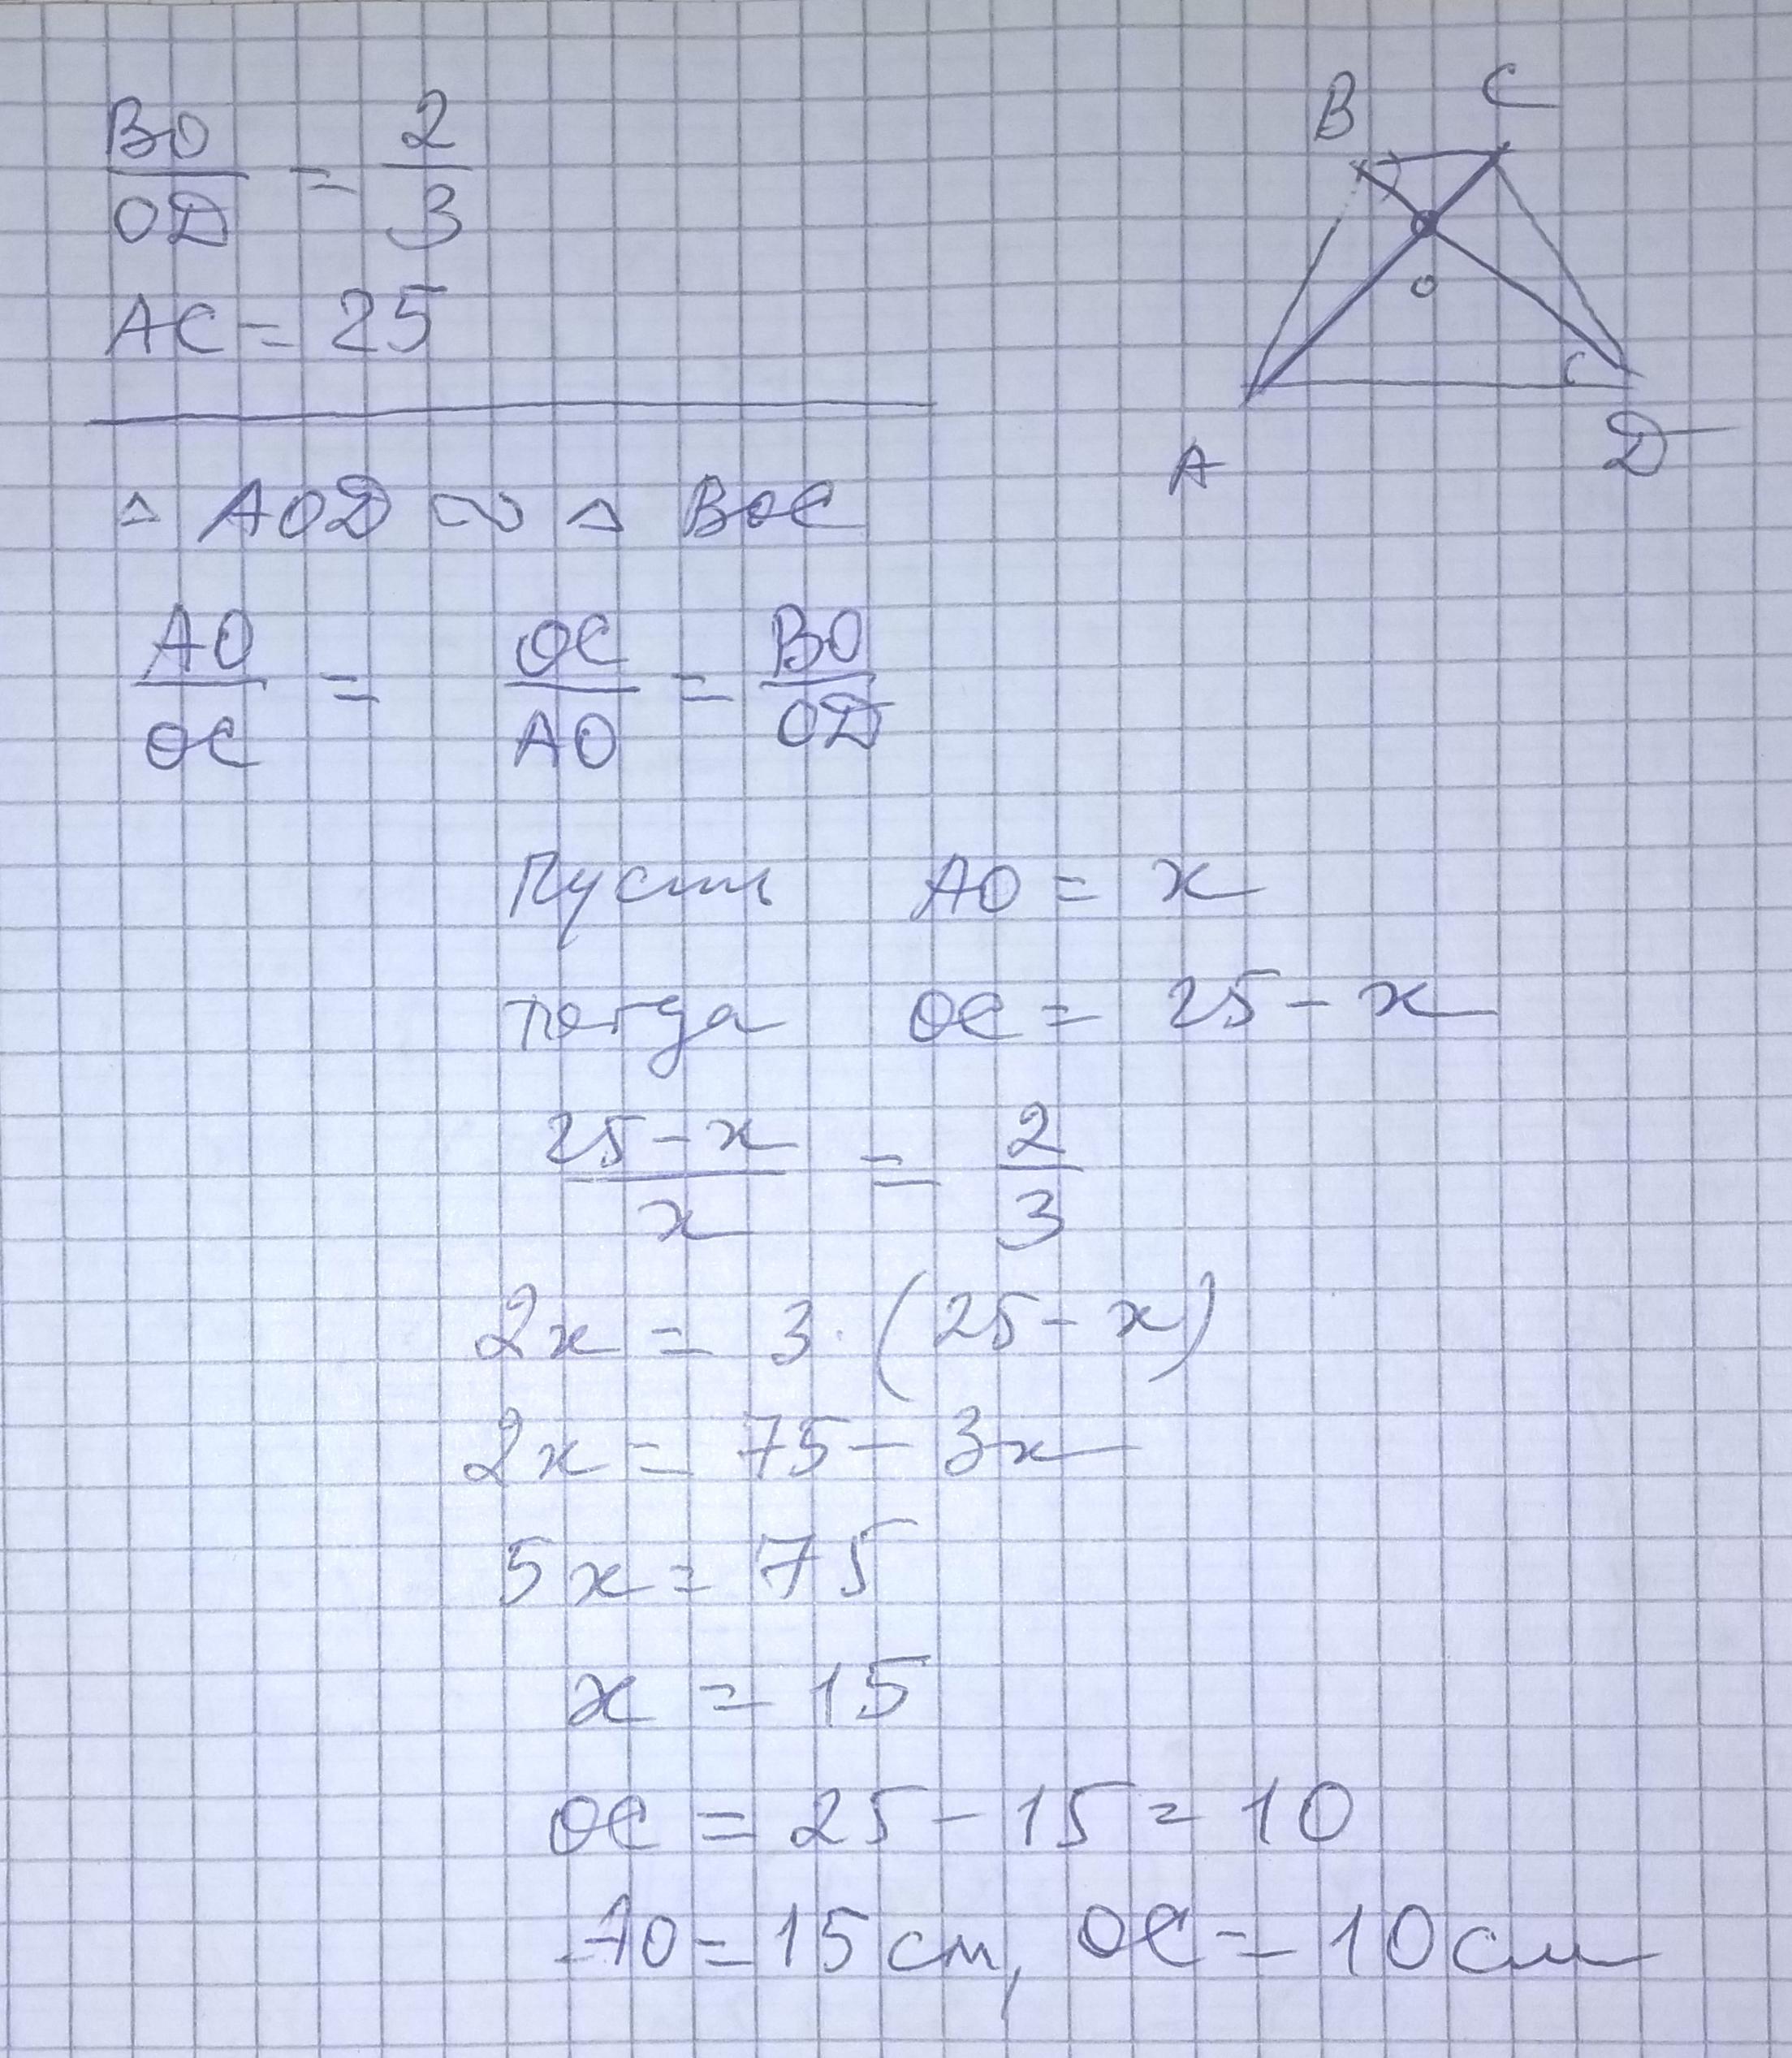 BO/OD = 2/3
AC = 25
B C
O
A D
△ AOD ∾ △ BOC
AO/OC = OC/AO = BO/OD
Пусть AO = x
тогда OC = 25 - x
25 - x / x = 2/3
2x = 3 · (25 - x)
2x = 75 - 3x
5x = 75
x = 15
OC = 25 - 15 = 10
AO = 15 см, OC = 10 см